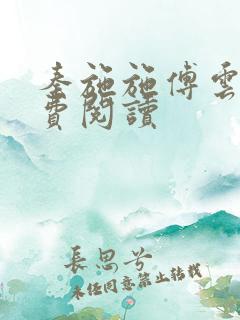 秦施施傅雲
費閱讀
長思兮
未經同意禁止轉載